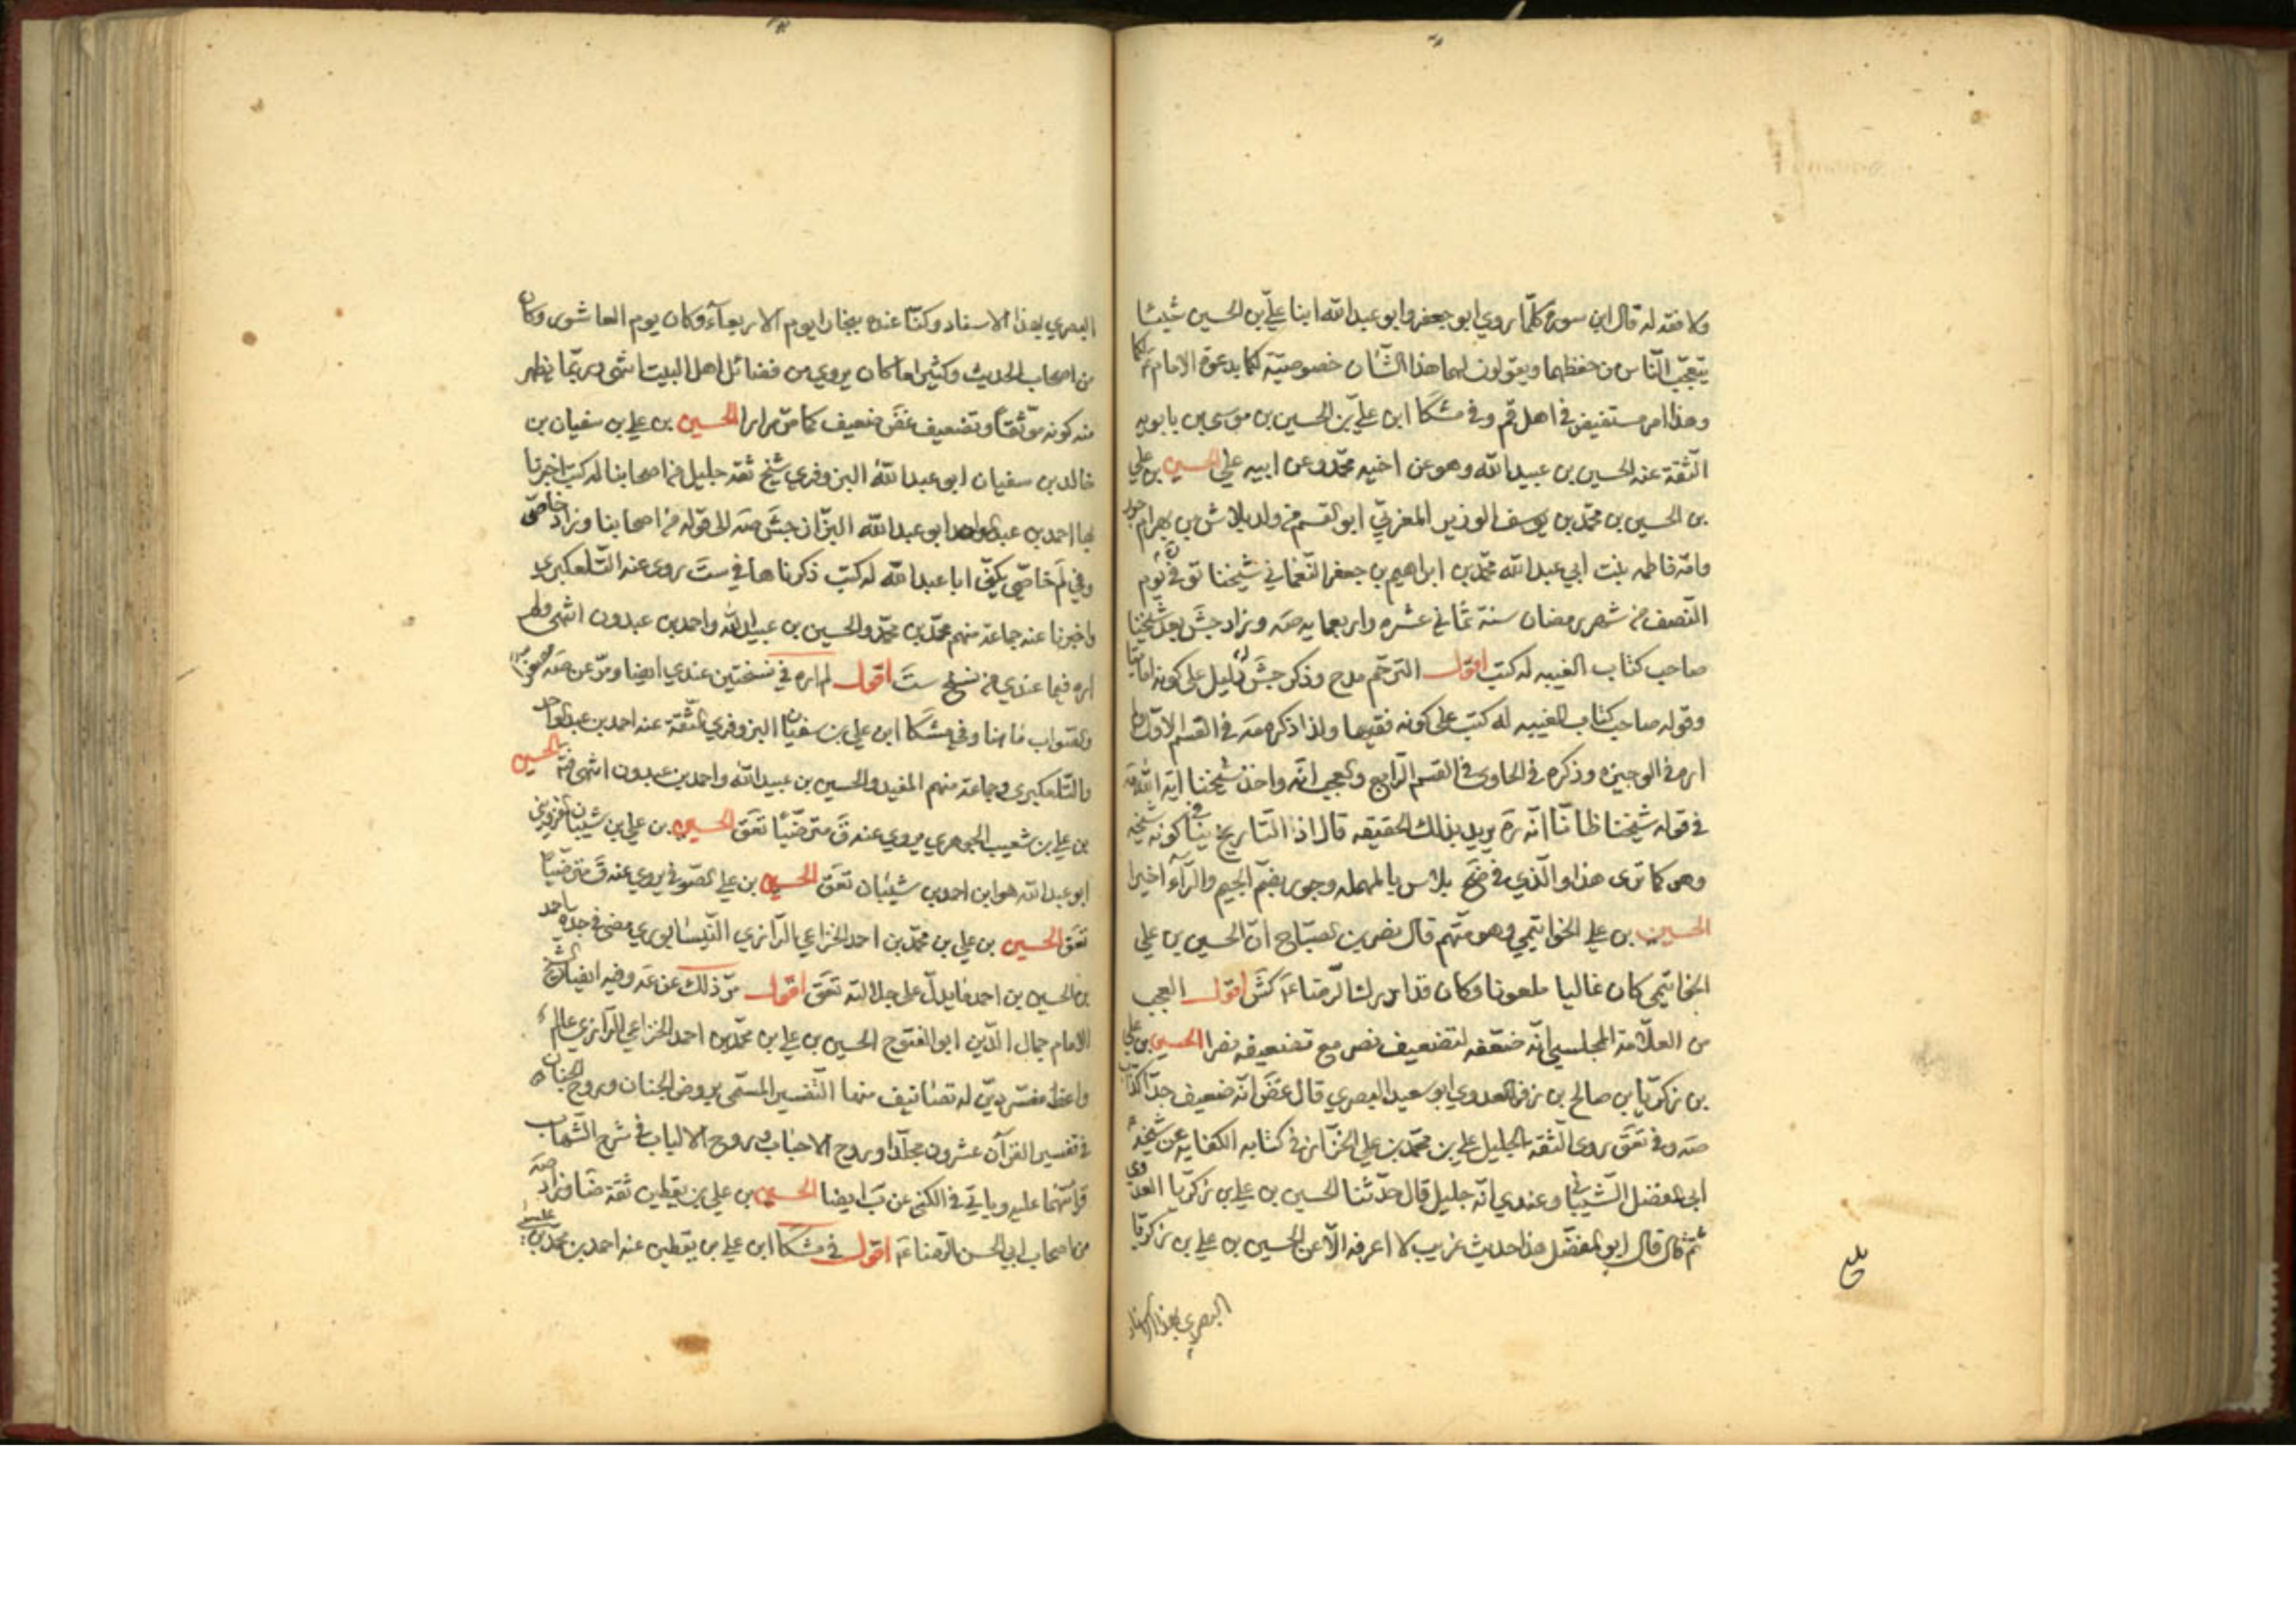 ولا فقه له قال ابن سورة كلّما روى ابو جعفر وابو عبد الله ابنا علىّ بن الحسين شيئا
يتعجّب النّاس من حفظهما ويقولون لهما هذا الشّان خصوصيّة لكما بدعوة الامام ع لكما
وهذا امر مستفيض في اهل قم وفي مشكا ابن علىّ بن الحسين بن موسى بن بابويه
الثّقة عنه الحسين بن عبيد الله وهو عن اخيه محمّد وعن ابيه علي الحسين بن علي
بن الحسين بن محمّد بن يوسف الوزير المغربيّ ابو القسم من ولد بلاش بن بهرام جور
وامّه فاطمه بنت ابي عبد الله محمّد بن ابراهيم بن جعفر النّعماني شيخنا توفّي يوم
النّصف من شهر رمضان سنة ثماني عشره واربعمايه صه وزاد جش بعد شيخنا
صاحب كتاب الغيبه له كتب اقول الترحّم مدح وذكر جش له دليل على كونه اماميّا
وقوله صاحب كتاب الغيبه له كتب على كونه فقيها ولذا ذكره صه في القسم الاوّل ولم
اره في الوجيزه وذكره في الحاوى في القسم الرّابع والعجب انّه واخذ شيخنا اية الله العلّامة
في قوله شيخنا ظانّا انّه ره يريد بذلك الحقيقه قال اذ التّاريخ ينافي كونه شيخه
وهو كما ترى هذا والّذي في ضح بلاس بالمهمله وجور بضمّ الجيم والرّاء اخيرا
الحسين بن علي الخواتيمي وهو متّهم قال نصر بن الصبّاح انّ الحسين بن علي
الخواتيمي كان غاليا ملعونا وكان قد ادرك الرّضا ع كش اقول العجب
من العلّامة المجلسي انّه ضعّفه لتضعيف نصر مع تضعيفه نصرا الحسين بن علي
بن زكريّا بن صالح بن زفر العدوي ابو سعيد البصري قال غض انّه ضعيف جدّا كذّاب
صه وفي تعق روى الثّقة الجليل علي بن محمّد بن علي الخزّاز في كتابه الكفايه عن شيخه
ابى المفضل الشّيباني وعندي انّه جليل قال حدّثنا الحسين بن علي بن زكريّا العدوي
ثمّ قال قال ابو المفضّل هذا حديث غريب لا اعرفه الّا عن الحسين بن علي بن زكريّا
البصري بهذا الاسناد
البصري بهذا الاسناد وكنّا عنده ببخارا يوم الاربعآء وكان يوم العاشور وكان
من اصحاب الحديث وكثيرا ما كان يروي من فضائل اهل البيت انتهى وربّما يظهر
منه كونه موثّقا وتضعيف غض ضعيف كما مرّ مرارا الحسين بن علي بن سفيان بن
خالد بن سفيان ابو عبد الله البزوفري شيخ ثقة جليل من اصحابنا له كتب اخبرنا
بها احمد بن عبد الواحد ابو عبد الله البزّاز جش صه الى قوله من اصحابنا وزاد خاصّي
وفي لم خاصّي يكنّى ابا عبد الله له كتب ذكرناها في ست روى عنه التّلعكبري
واخبرنا عنه جماعة منهم محمّد بن محمّد والحسين بن عبيد الله واحمد بن عبدون انتهى ولم
اره فيما عندي من نسخ ست اقول لم اره في نسختين عندي ايضا ومرّ عن صه
والصّواب ما هنا وفي مشكا ابن علي بن سفيان البزوفري الثّقة عنه احمد بن عبد الواحد
والتّلعكبرى وجماعة منهم المفيد والحسين بن عبيد الله واحمد بن عبدون انتهى الحسين
بن علي بن شعيب الجوهري يروي عنه ق مترضّيا تعق الحسين بن علي بن شيبان القزويني
ابو عبد الله هو ابن احمد بن شيبان تعق الحسين بن علي الصّوفي يروي عنه ق مترضّيا
تعق الحسين بن علي بن محمّد بن احمد الخزاعي الرّازي النّيسابوري مضى في جدّه احمد
بن الحسين بن احمد ما يدلّ على جلالته تعق اقول مرّ ذلك عن عه وفيه ايضا الشّيخ
الامام جمال الدّين ابو الفتوح الحسين بن علي بن محمّد بن احمد الخزاعي الرّازي عالم
واعظ مفسّر ديّن له تصانيف منها التّفسير المسمّى بروض الجنان وروح الجنان
في تفسير القرآن عشرون مجلّدا وروح الاحباب وروح الالباب في شرح الشّهاب
قرأتهما عليه ويأتي في الكنى عن ب ايضا الحسين بن علي بن يقطين ثقة ضا وزاد صه
من اصحاب ابي الحسن الرّضا ع اقول في مشكا ابن علي بن يقطين عنه احمد بن محمّد بن عيسى